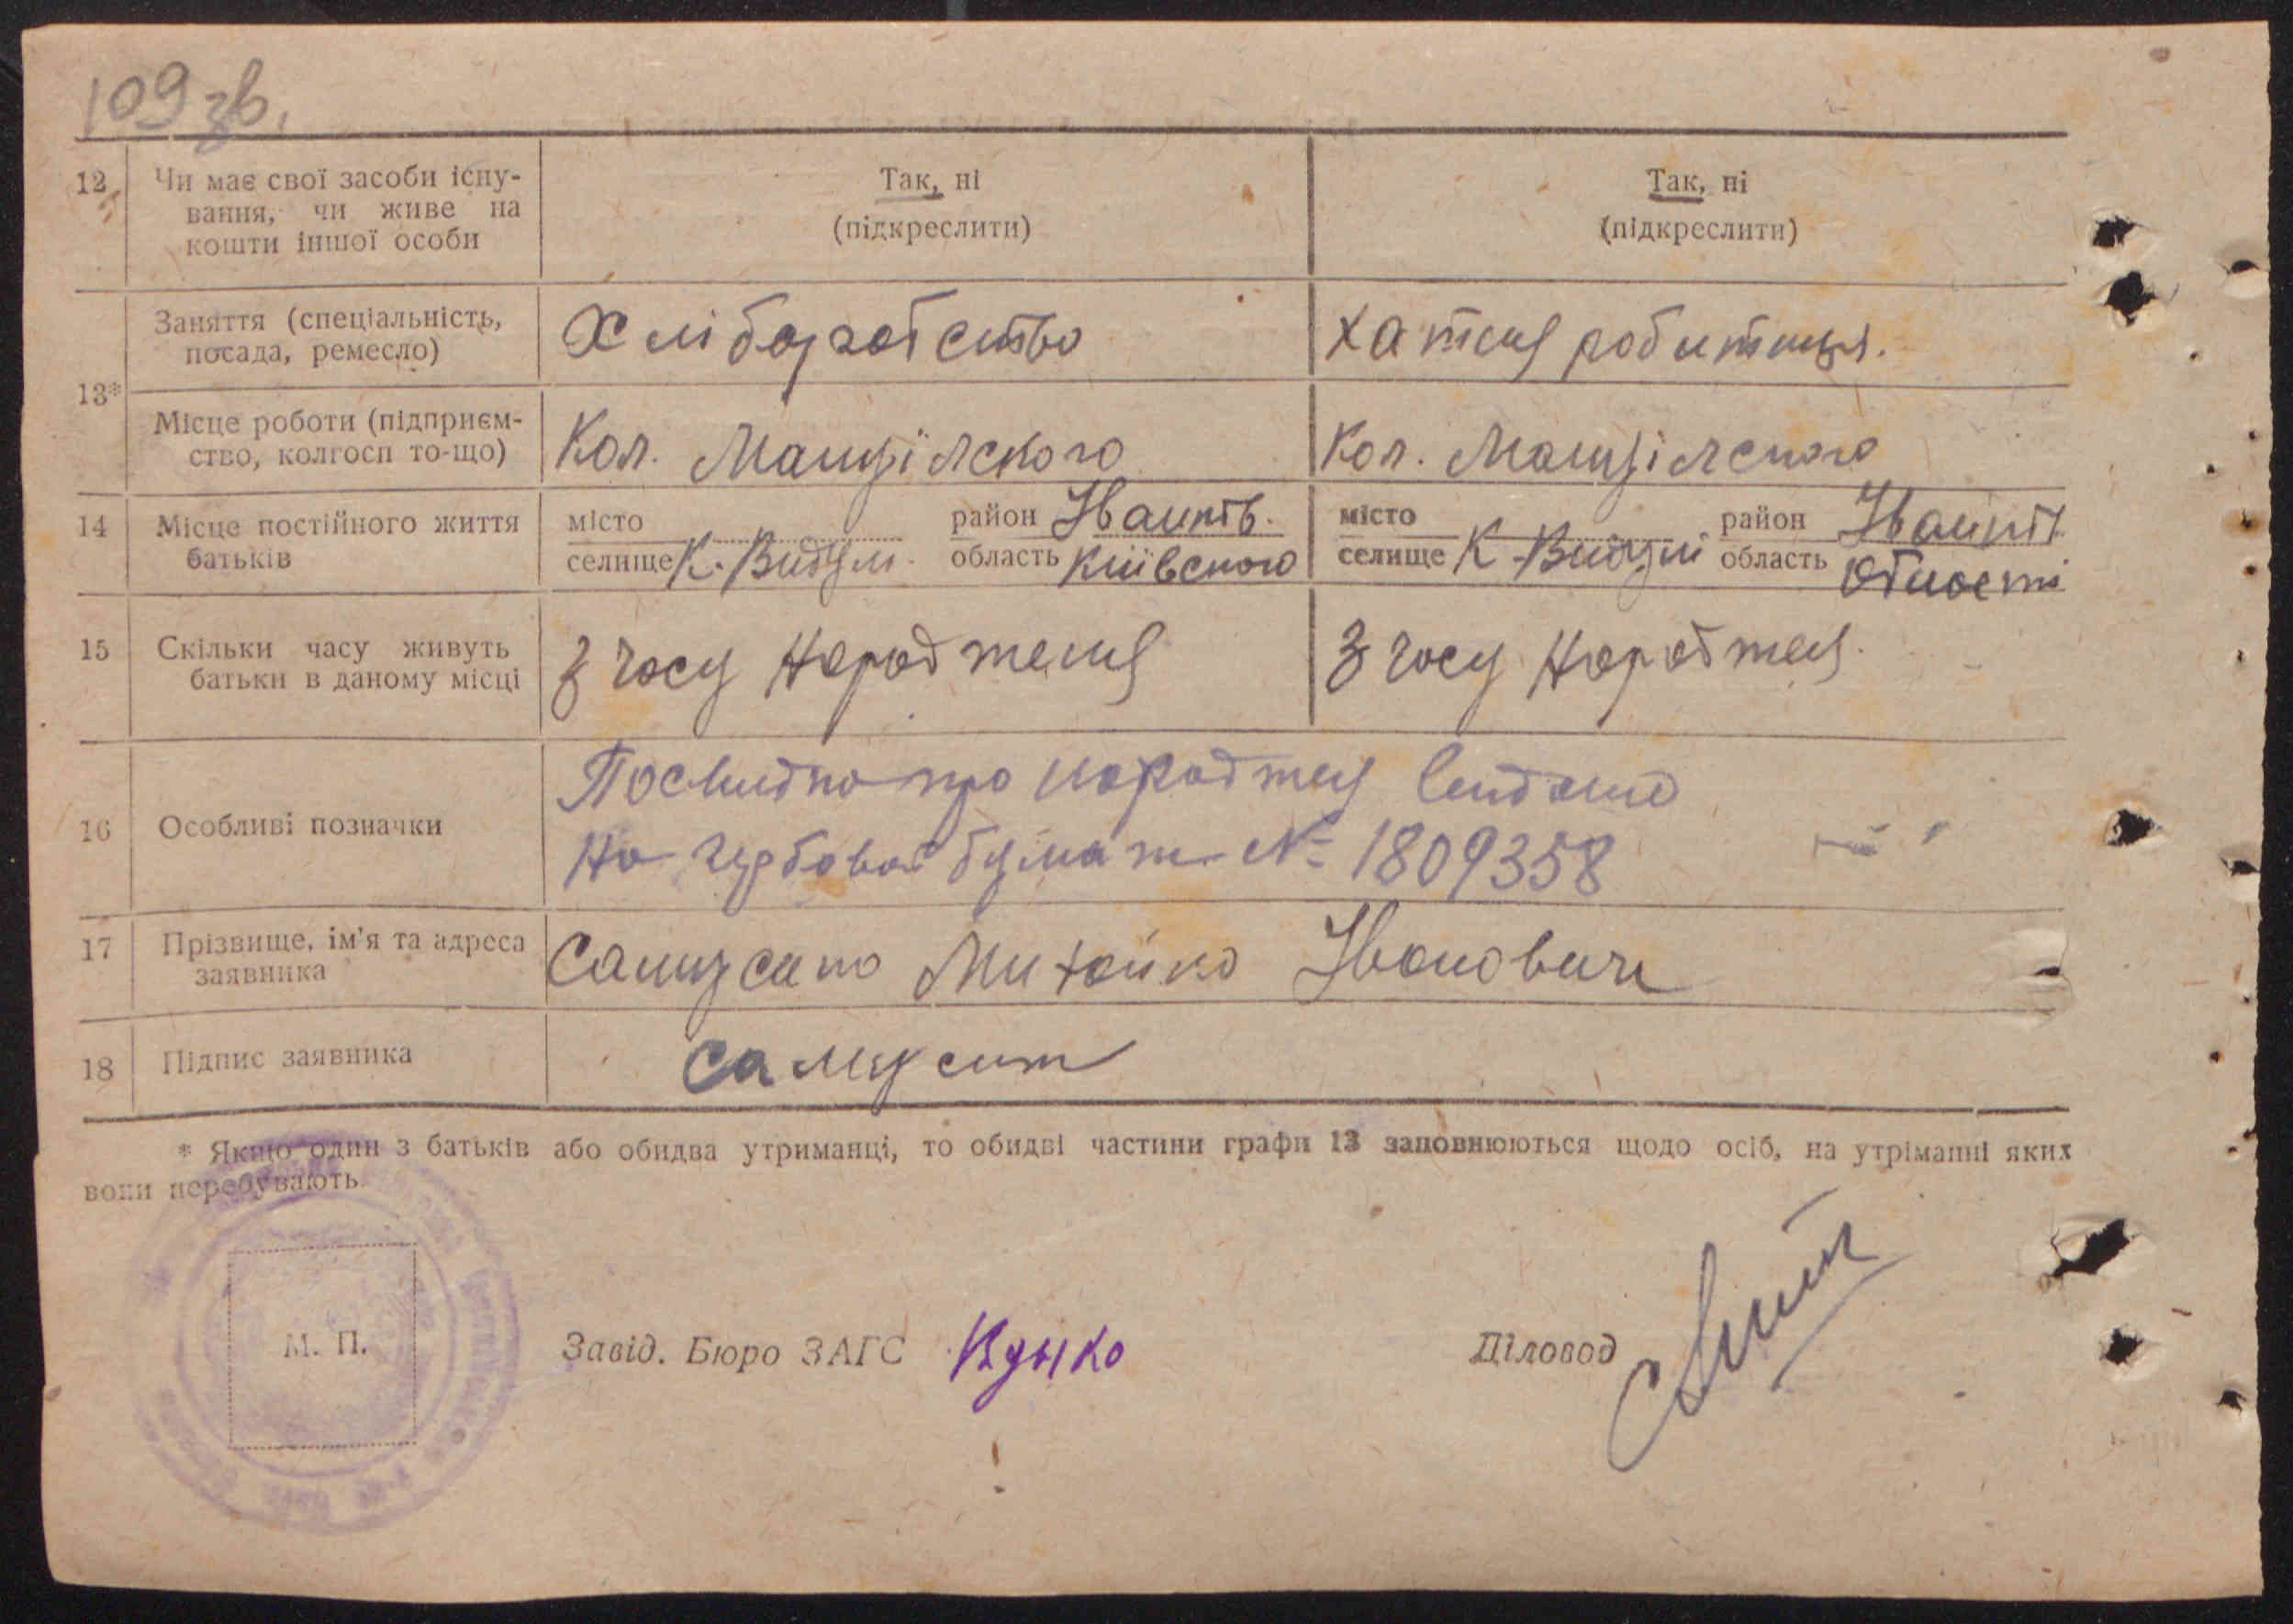 109 зв.
12 Чи має свої засоби існу-
вання, чи живе на
кошти іншої особи
Так, ні
(підкреслити)
Так, ні
(підкреслити)
13*
Заняття (спеціальність,
посада, ремесло)
Хліборобство
Хатня робитниця.
Місце роботи (підприєм-
ство, колгосп то-що)
Кол.
Кол.
14 Місце постійного життя
батьків
місто
селище К.
район Іванків.
область Київского
місто
селище К
район
область області
15 Скільки часу живуть
батьки в даному місці
З часу народженя
З часу народженя.
16 Особливі позначки
Посвидко про народженя видано
На гербовой бумаги № 1809358
17 Прізвище, ім'я та адреса
заявника
Михайло Іванович
18 Підпис заявника
* Якщо один з батьків або обидва утриманці, то обидві частини графи 13 заповнюються щодо осіб, на утріманні яких
вони перебувають.
М. П.
Завід. Бюро ЗАГС
Діловод